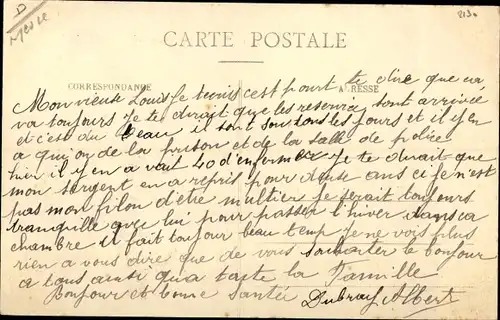 D
213.
CARTE POSTALE
CORRESPONDANCE ADRESSE
Mon vieux Louis Je t'ecris c'est pour te dire que ca
va toujours Je te dirait que les reservis sont arrivée
et c'est du beau il sont tous les jours et il y en
a qui on de la prison et de la salle de police
hier il y en a vait 40 d'enfermer Je te dirait que
mon sergent en a repris pour deux ans ci je n'est
pas mon filon d'être multier je ferait toujours
tranquille avec lui pour passer l'hiver dans ca
chambre il fait toujour beau temp Je ne vois plus
rien a vous dire que de vous souhaiter le bonjour
a tous ainsi qu'a toute la Famille
Bonjour et bonne santée Albert